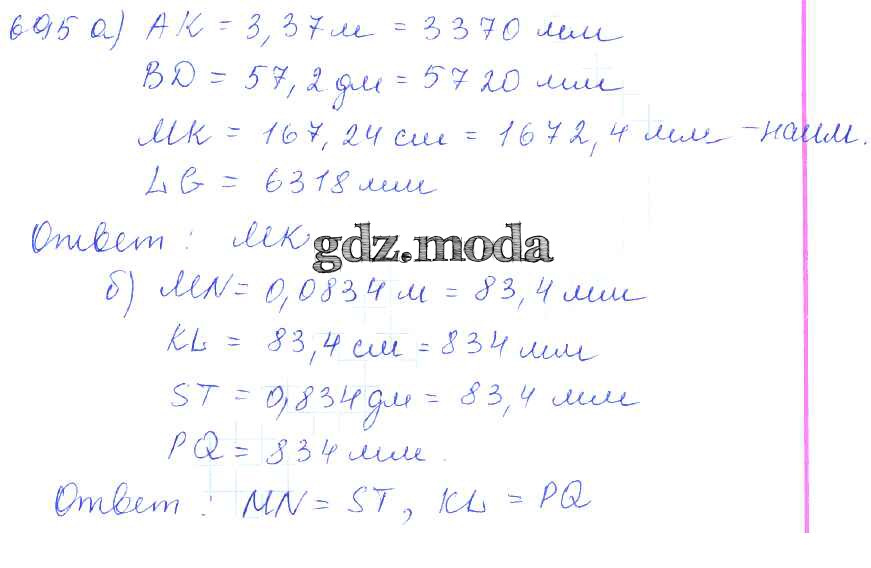 695 а) АК = 3,37 м = 3370 мм
BD = 57,2 дм = 5720 мм
МК = 167,24 см = 1672,4 мм - наим.
LG = 6318 мм
Ответ : МК
gdz.moda
б) MN = 0,0834 м = 83,4 мм
KL = 83,4 см = 834 мм
ST = 0,834 дм = 83,4 мм
PQ = 834 мм.
Ответ : MN = ST, KL = PQ